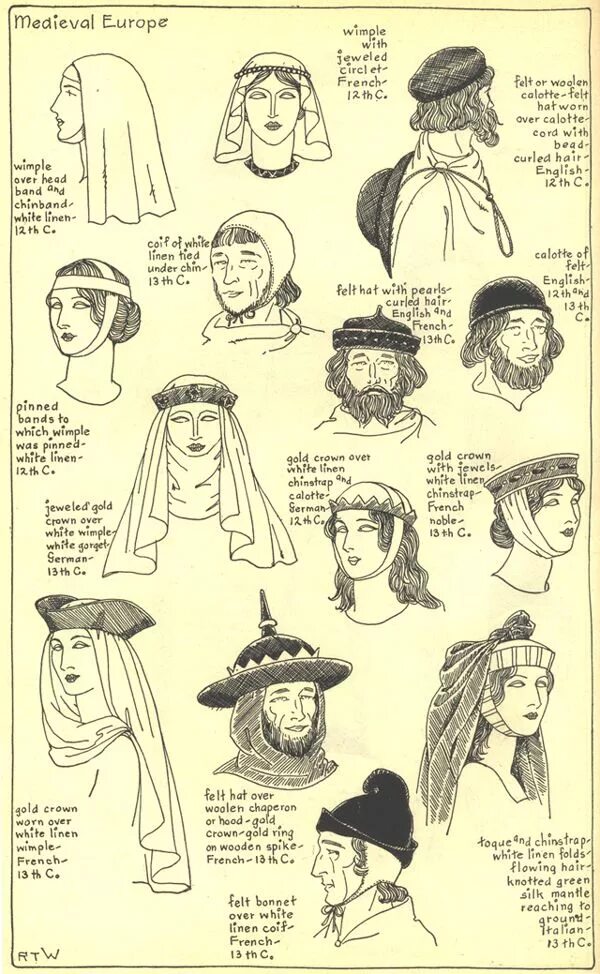 Medieval Europe
wimple
with
jeweled
circlet-
French-
12th C.
felt or woolen
calotte-felt
hat worn
over calotte-
cord with
bead-
curled hair-
English-
12th C.
wimple
over head
band and
chinband-
white linen-
12th C.
coif of white
linen tied
under chin-
13th C.
calotte of
felt-
English-
12th and
13th
C.
felt hat with pearls-
curled hair-
English and
French-
13th C.
pinned
bands to
which wimple
was pinned-
white linen-
12th C.
jeweled gold
crown over
white wimple-
white gorget-
German-
13th C.
gold crown over
white linen
chinstrap and
calotte-
German-
12th C.
gold crown
with jewels-
white linen
chinstrap-
French
noble-
13th C.
gold crown
worn over
white linen
wimple-
French-
13th C.
felt hat over
woolen chaperon
or hood-gold
crown-gold ring
on wooden spike-
French-13th C.
toque and chinstrap-
white linen folds-
flowing hair-
knotted green
silk mantle
reaching to
ground-
Italian-
13th C.
felt bonnet
over white
linen coif-
French-
13th C.
RTW